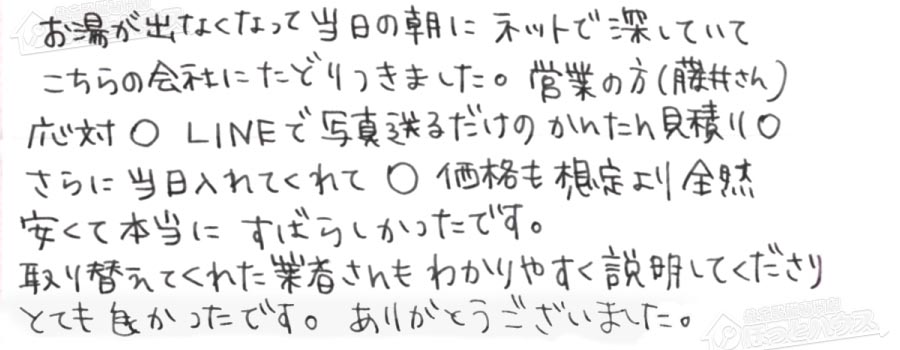 お湯が出なくなって当日の朝に ネットで深していて
こちらの会社にたどりつきました。営業の方(藤井さん)
応対〇 LINEで写真送るだけのかんたん見積り〇
さらに当日入れてくれて 〇 価格も想定より全然
安くて本当に すばらしかったです。
取り替えてくれた業者さんもわかりやすく説明してくださり
とても良かったです。ありがとうございました。
ほっとハウス